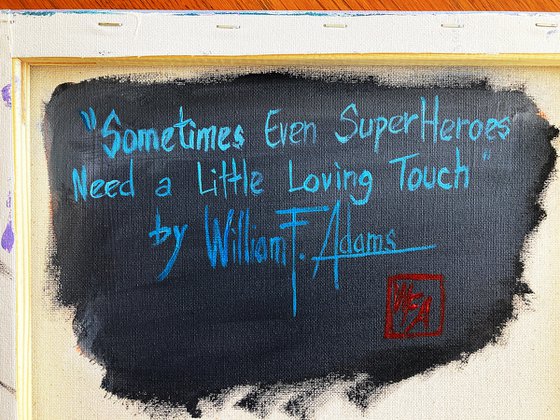 "Sometimes Even SuperHeroes
Need a Little Loving Touch"
by William F. Adams
WFA